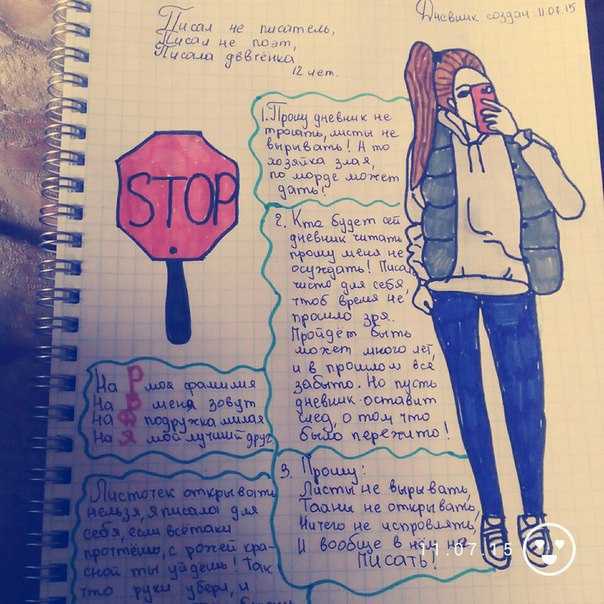 Писал не писатель,
Писал не поэт,
Писала девчёнка
12 лет.
Дневник создан 11.07.15
1. Прошу дневник не
трогать, листы не
вырывать! А то
хозяйка злая,
по морде может
дать!
STOP
2. Кто будет сей
дневник читать
прошу меня не
осуждать! Писала
чисто для себя,
чтоб время не
прошло зря.
Пройдёт быть
может много лет,
и в прошлом всё
забыто. Но пусть
дневник оставит
след, о том что
было пережито!
На Р моя фамилия
На меня зовут
На подружка милая
На Я мой лучший друг
3. Прошу:
Листы не вырывать,
Таайн не открывать,
Ничего не испровлять,
И вообще в нём не
Писать!
Листочек открывать
нельзя, я писала для
себя, если всётаки
протчёшь, с рожей кра-
сной ты уйдёшь! Так
что руки убери, и
11.07.15